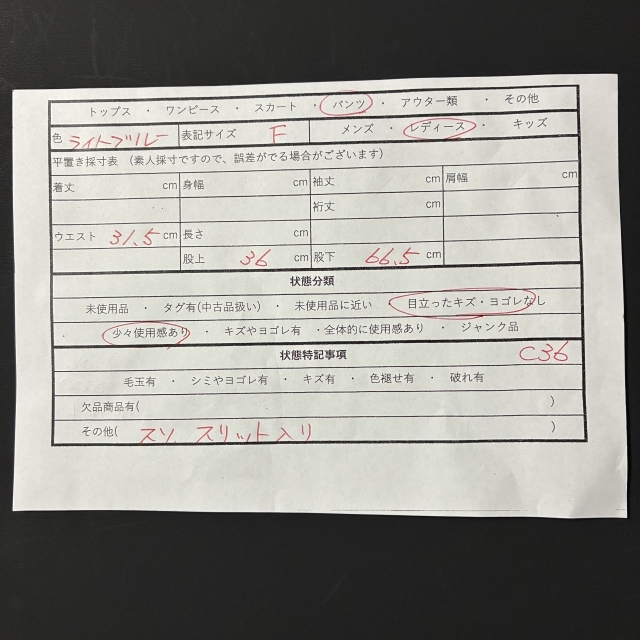 トップス ・ ワンピース ・ スカート ・ パンツ ・ アウター類 ・ その他
色 ライトブルー 表記サイズ F メンズ ・ レディース ・ キッズ
平置き採寸表 (素人採寸ですので、誤差がでる場合がございます)
着丈 cm 身幅 cm 袖丈 cm 肩幅 cm
裄丈 cm
ウエスト 31.5 cm 長さ cm
股上 36 cm 股下 66.5 cm
状態分類
未使用品 ・ タグ有(中古品扱い) ・ 未使用品に近い ・ 目立ったキズ・ヨゴレなし
少々使用感あり ・ キズやヨゴレ有 ・全体的に使用感あり ・ ジャンク品
状態特記事項 C36
毛玉有 ・ シミやヨゴレ有 ・ キズ有 ・ 色褪せ有 ・ 破れ有
欠品商品有( )
その他( スソ スリット入り )